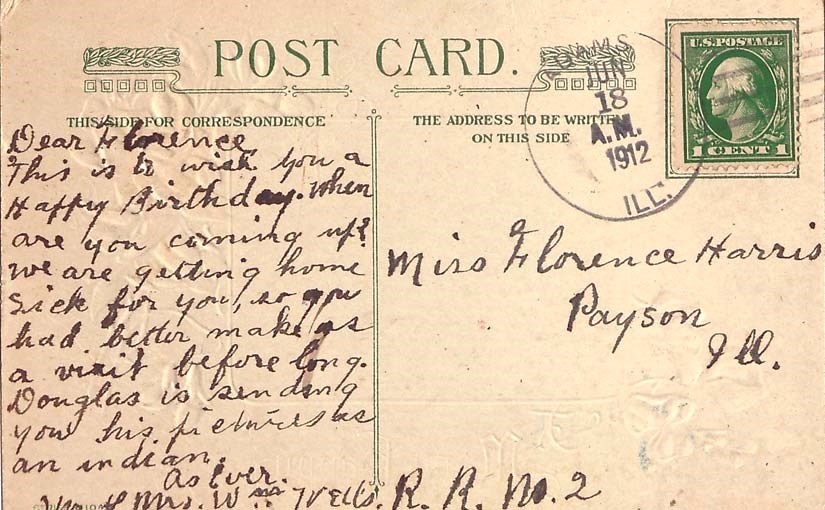 POST CARD.
THIS SIDE FOR CORRESPONDENCE
THE ADDRESS TO BE WRITTEN
ON THIS SIDE
ADAMS
JUN
18
A.M.
1912
ILL.
U.S. POSTAGE
1 CENT 1
Dear Florence
This is to wish you a
Happy Birthday. When
are you coming up?
We are getting home
sick for you, so you
had better make us
a visit before long.
Douglas is sending
you his pictures as
an indian.
As Ever.
Mr. & Mrs. Wm Wells.
Miss Florence Harris
Payson
Ill.
R. R. No. 2